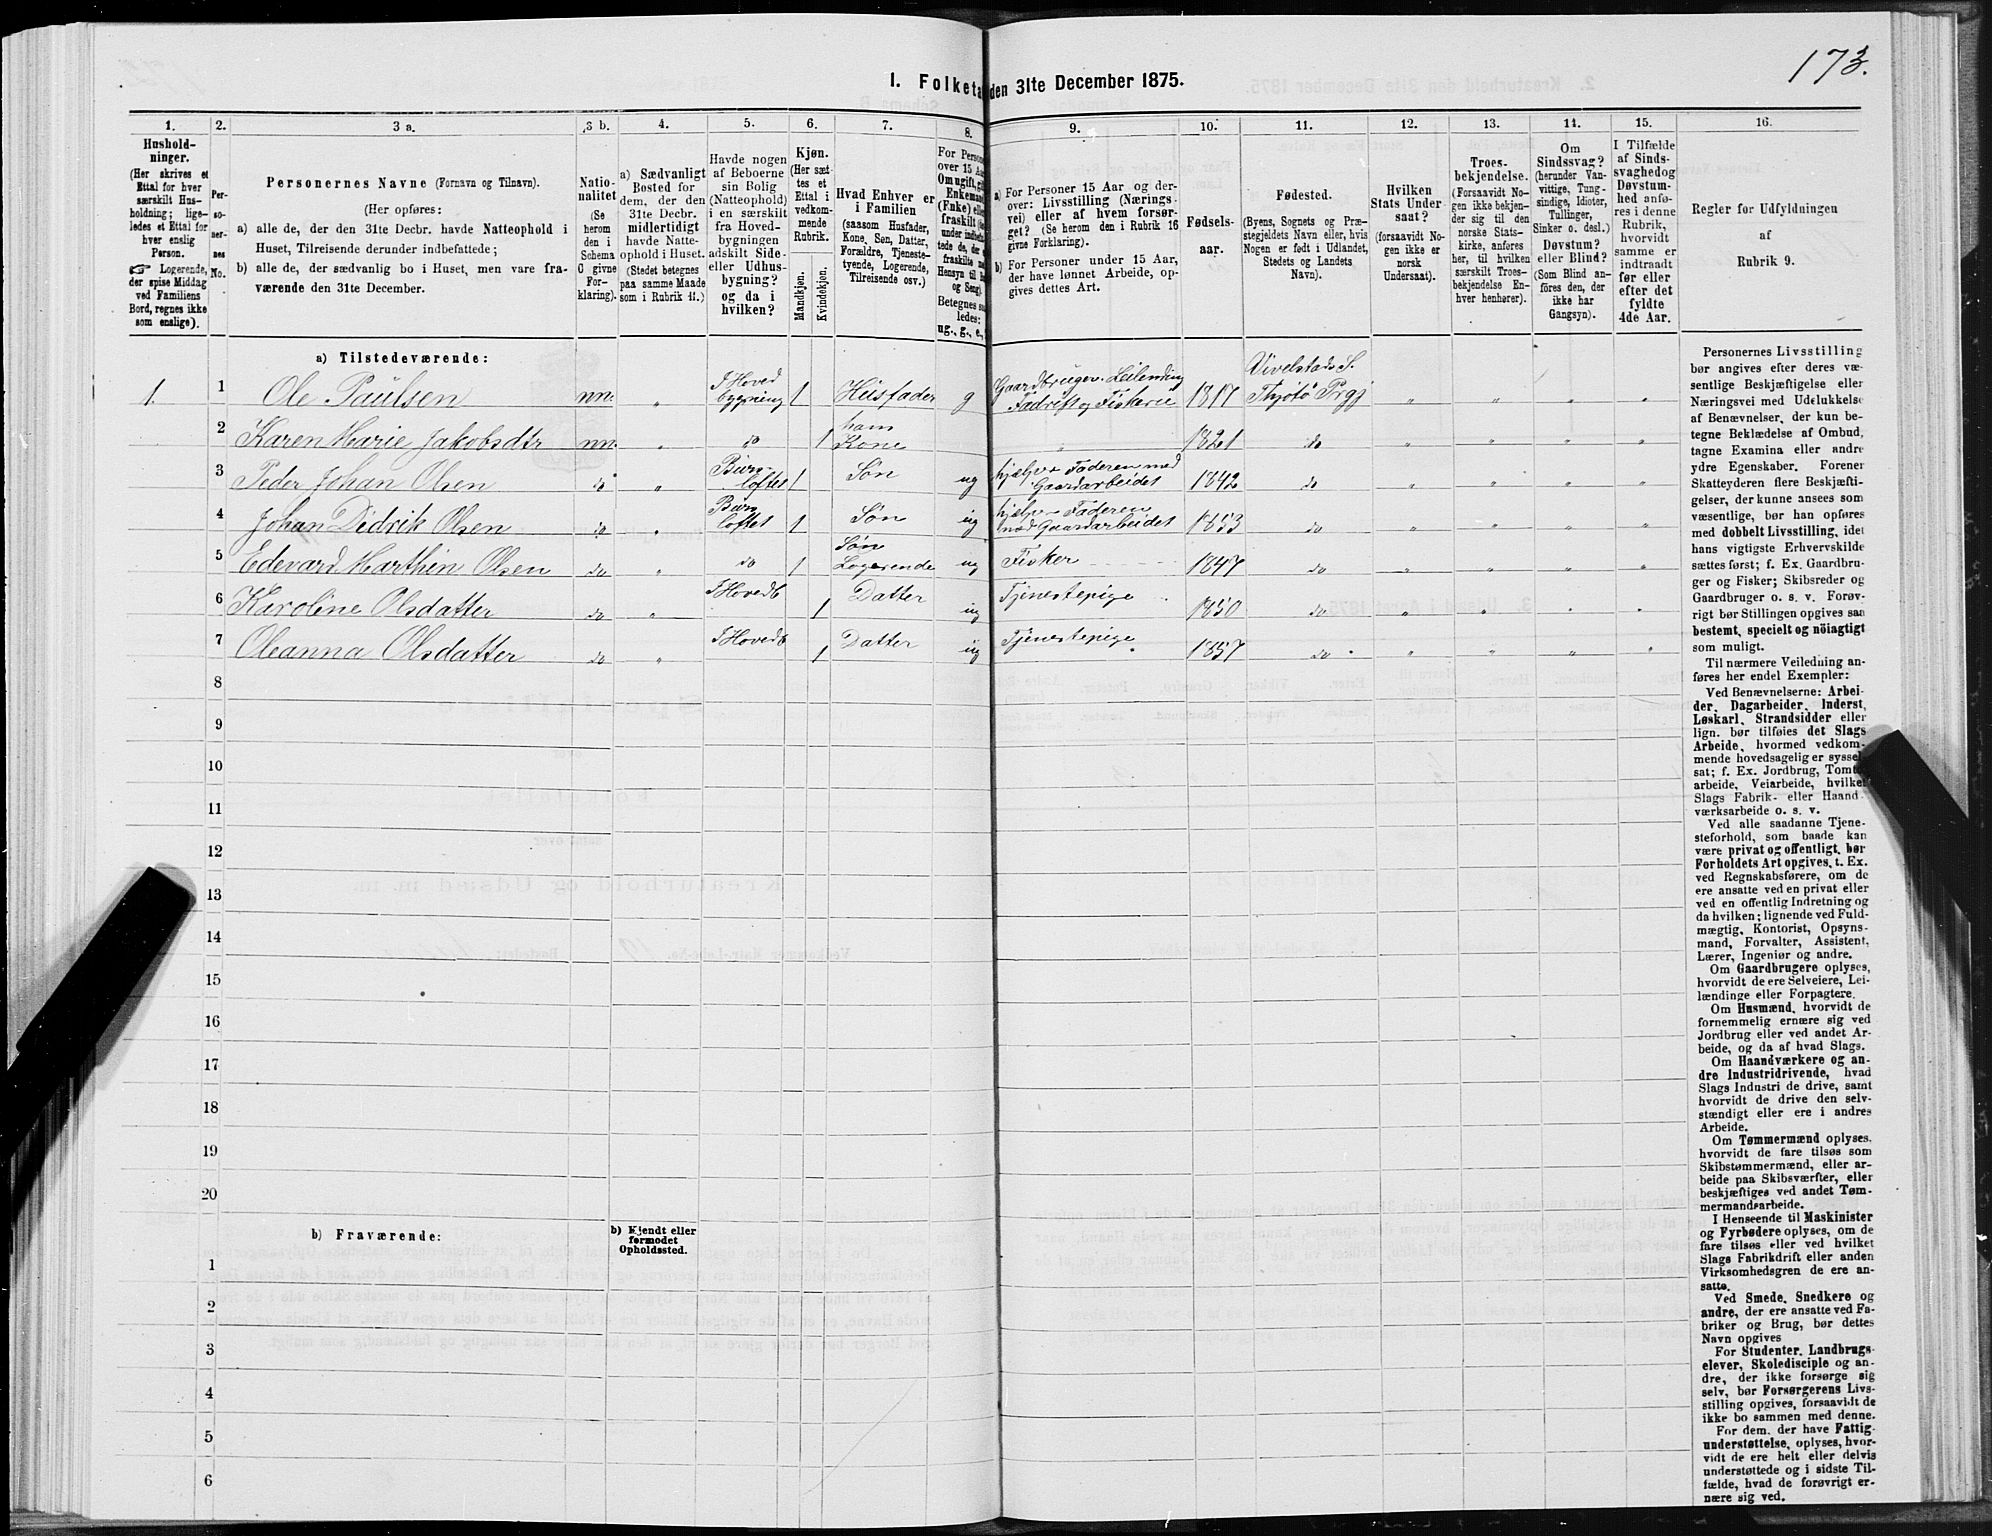 173.
I. Folketa den 31te December 1875.
1. 2. 3 a. 3 b. 4. 5. 6. 7. 8. 9. 10. 11. 12. 13. 14. 15. 16.
Hushold-
ninger.
(Her skrives et
Ettal for hver
særskilt Hus-
holdning; lige-
ledes et Ettal for
hver enslig
Person.
☞ Logerende,
der spise Middag
ved Familiens
Bord, regnes ikke
som enslige).
Per-
so-
ner-
nes
No.
Personernes Navne (Fornavn og Tilnavn).
(Her opføres:
a) alle de, der den 31te Decbr. havde Natteophold i
Huset, Tilreisende derunder indbefattede;
b) alle de, der sædvanlig bo i Huset, men vare fra-
værende den 31te December.
Natio-
nalitet
(Se
herom
den i
Schema
C givne
For-
klaring).
a) Sædvanligt
Bosted for
dem, der den
31te Decbr.
midlertidigt
havde Natte-
ophold i Huset
(Stedet betegnes
paa samme Maade
som i Rubrik 11.)
Havde nogen
af Beboerne
sin Bolig
(Natteophold)
i en særskilt
fra Hoved-
bygningen
adskilt Side-
eller Udhus-
bygning?
og da i
hvilken?
Kjøn.
(Her sæt-
tes et
Ettal i
vedkom-
mende
Rubrik.
Mandkjøn.
Kvindekjøn.
Hvad Enhver er
i Familien
(saasom Husfader,
Kone, Søn, Datter,
Forældre, Tjeneste-
tyende, Logerende,
Tilreisende osv.)
For Perso
over 15 Aar
Om ugift, gi
Enkeman
(Enke) elle
fraskilt (s
under indbe
tede de, der
fraskilte m
Hensyn til B
og Seng).
Betegnes s
ledes:
ug., g., e.,
a) For Personer 15 Aar og der-
over: Livsstilling (Nærings-
vei) eller af hvem forsør-
get? (Se herom den i Rubrik 16
givne Forklaring).
b) For Personer under 15 Aar,
der have lønnet Arbeide, op-
gives dettes Art.
Fødsels-
aar.
Fødested.
(Byens, Sognets og Præ-
stegjeldets Navn eller, hvis
Nogen er født i Udlandet,
Stedets og Landets
Navn).
Hvilken
Stats Under-
saat?
(forsaavidt No-
gen ikke er
norsk
Undersaat).
Troes-
bekjendelse.
(Forsaavidt No-
gen ikke bekjen-
der sig til den
norske Stats-
kirke, anføres
her, til hvilken
særskilt Troes-
bekjendelse En-
hver henhører).
Om
Sindssvag?
(herunder Van-
vittige, Tung-
sindige, Idioter,
Tullinger,
Sinker o. desl.)
Døvstum?
eller Blind?
(Som Blind an-
føres den, der
ikke har
Gangsyn).
I Tilfælde
af Sinds-
svaghed og
Døvstum-
hed anfø-
res i denne
Rubrik,
hvorvidt
samme er
indtraadt
før eller
efter det
fyldte
4de Aar.
Regler for Udfyldningen
af
Rubrik 9.
a) Tilstedeværende:
1. 1 Ole Paulsen nn. „ I Hoved bygning 1 Husfader g Gaardbruger. Leilending Fadrift og Fiskerie 1817 Vivelstads S. Thjøtø Prgj „ „ „ „
2 Karen Marie Jakobsdtr nn. „ do 1 hans Kone „ 1821 do „ „ „ „
3 Peder Johan Olsen do „ Burs loftet 1 Søn ug hjelper Faderen med Gaardarbeidet 1842 do „ „ „ „
4 Johan Didrik Olsen do „ Burs loftet 1 Søn ug hjelper Faderen med Gaardarbeidet 1853 do „ „ „ „
5 Edevard Marthin Olsen do „ do 1 Søn Logerende ug Fisker 1847 do „ „ „ „
6 Karoline Olsdatter do „ I Hovedb 1 Datter ug Tjenestepige 1850 do „ „ „ „
7 Oleanna Olsdatter do „ I Hovedb 1 Datter ug Tjenestepige 1857 do „ „ „ „
8
9
10
11
12
13
14
15
16
17
18
19
20
b) Fraværende:
b) Kjendt eller
formodet
Opholdssted.
1
2
3
4
5
6
Personernes Livsstilling
bør angives efter deres væ-
sentlige Beskjæftigelse eller
Næringsvei med Udelukkelse
af Benævnelser, der kun be-
tegne Beklædelse af Ombud,
tagne Examina eller andre
ydre Egenskaber. Forener
Skatteyderen flere Beskjæfti-
gelser, der kunne ansees som
væsentlige, bør han opføres
med dobbelt Livsstilling, idet
hans vigtigste Erhvervskilde
sættes først; f. Ex. Gaardbru-
ger og Fisker; Skibsreder og
Gaardbruger o. s. v. Forøv-
rigt bør Stillingen opgives saa
bestemt, specielt og nøiagtigt
som muligt.
Til nærmere Veiledning an-
føres her endel Exempler:
Ved Benævnelserne: Arbei-
der, Dagarbeider, Inderst,
Løskarl, Strandsidder eller
lign. bør tilføies det Slags
Arbeide, hvormed vedkom-
mende hovedsagelig er syssel-
sat; f. Ex. Jordbrug, Tomt-
arbeide, Veiarbeide, hvilket
Slags Fabrik- eller Haand-
værksarbeide o. s. v.
Ved alle saadanne Tjene-
steforhold, som baade kan
være privat og offentligt, bør
Forholdets Art opgives, t. Ex.
ved Regnskabsførere, om de
ere ansatte ved en privat eller
ved en offentlig Indretning og
da hvilken; lignende ved Fuld-
mægtig, Kontorist, Opsyns-
mand, Forvalter, Assistent,
Lærer, Ingeniør og andre.
Om Gaardbrugere oplyses,
hvorvidt de ere Selveiere, Lei-
lændinge eller Forpagtere.
Om Husmænd, hvorvidt de
fornemmelig ernære sig ved
Jordbrug eller ved andet Ar-
beide, og da af hvad Slags.
Om Haandværkere og an-
dre Industridrivende, hvad
Slags Industri de drive, samt
hvorvidt de drive den selv-
stændigt eller ere i andres
Arbeide.
Om Tømmermænd oplyses,
hvorvidt de fare tilsøs som
Skibstømmermænd, eller ar-
beide paa Skibsværfter, eller
beskjæftiges ved andet Tøm-
mermandsarbeide.
I Henseende til Maskinister
og Fyrbødere oplyses, om de
fare tilsøs eller ved hvilket
Slags Fabrikdrift eller anden
Virksomhedsgren de ere an-
satte.
Ved Smede, Snedkere og
andre, der ere ansatte ved Fa-
briker og Brug, bør dettes
Navn opgives
For Studenter, Landbrugs-
elever, Skoledisciple og an-
dre, der ikke forsørge sig
selv, bør Forsørgerens Livs-
stilling opgives, forsaavidt de
ikke bo sammen med denne.
For dem, der have Fattig-
understøttelse, oplyses, hvor-
vidt de ere helt eller delvis
understøttede og i sidste Til-
fælde, hvad de forøvrigt er-
nære sig ved.